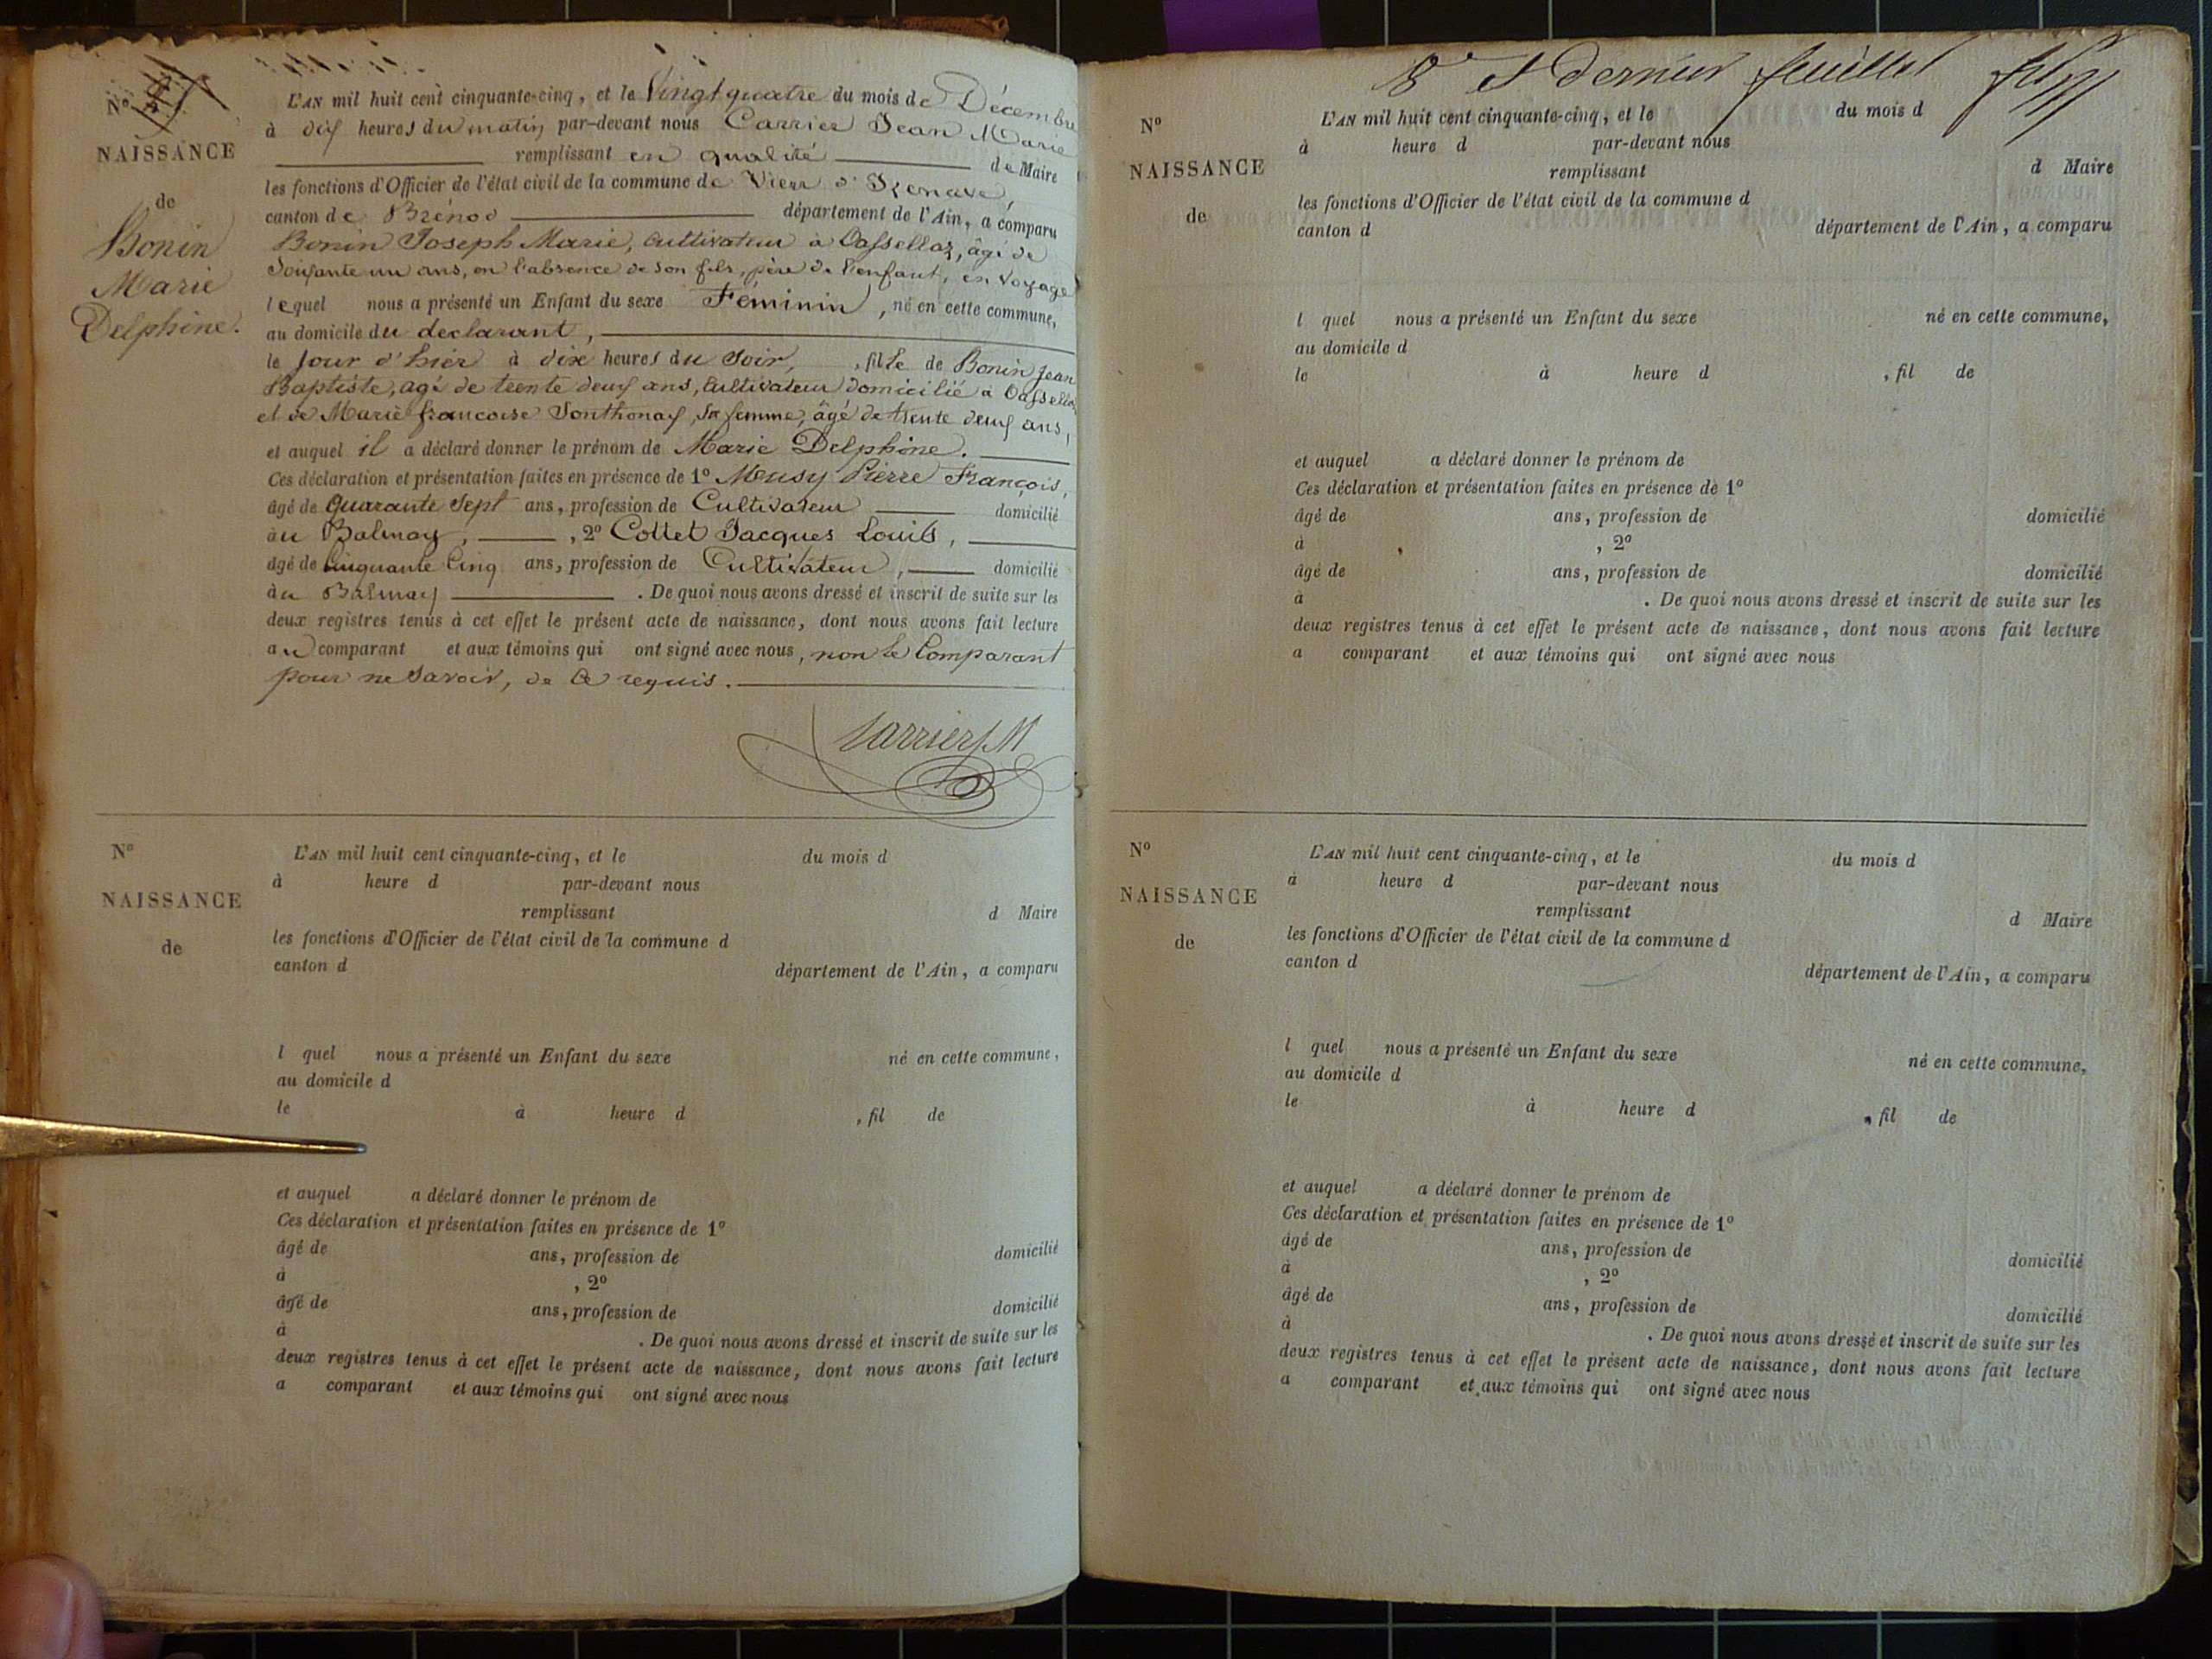 Nº
NAISSANCE
de
Bonin
Marie
Delphine.
L'AN mil huit cent cinquante-cinq, et le Vingt quatre du mois de Décembre
à dix heures du matin par-devant nous Carrier Jean Marie
remplissant en qualité de Maire
les fonctions d'Officier de l'état civil de la commune de Vieu d'Izenave,
canton de Brénod département de l'Ain, a comparu
Bonin Joseph Marie, cultivateur à Oassellaz, âgé de
Soixante un ans, en l'absence de son fils, père de l'enfant, en voyage
lequel nous a présenté un Enfant du sexe Féminin, né en cette commune,
au domicile du déclarant,
le jour d'hier à dix heures du Soir, , fille de Bonin Jean
Baptiste, agé de trente deux ans, Cultivateur domicilié à
et de Marie françoise Sonthonax, Sa femme, âgé de trente deux ans,
et auquel il a déclaré donner le prénom de Marie Delphine.
Ces déclaration et présentation faites en présence de 1º Meusy Pierre François,
âgé de Quarante Sept ans, profession de Cultivateur domicilié
au Balmay, , 2º Collet Jacques Louis,
âgé de Cinquante Cinq ans, profession de Cultivateur, domicilié
au Balmay . De quoi nous avons dressé et inscrit de suite sur les
deux registres tenus à cet effet le présent acte de naissance, dont nous avons fait lecture
au comparant et aux témoins qui ont signé avec nous, non le Comparant
pour ne Savoir, de Ce requis.
Carrier J M
Nº
NAISSANCE
de
L'AN mil huit cent cinquante-cinq, et le du mois d
à heure d par-devant nous
remplissant d Maire
les fonctions d'Officier de l'état civil de la commune d
canton d département de l'Ain, a comparu
l quel nous a présenté un Enfant du sexe né en cette commune,
au domicile d
le à heure d , fil de
et auquel a déclaré donner le prénom de
Ces déclaration et présentation faites en présence de 1º
âgé de ans, profession de domicilié
à , 2º
âgé de ans, profession de domicilié
à . De quoi nous avons dressé et inscrit de suite sur les
deux registres tenus à cet effet le présent acte de naissance, dont nous avons fait lecture
a comparant et aux témoins qui ont signé avec nous
8e et dernier feuillet
Nº
NAISSANCE
de
L'AN mil huit cent cinquante-cinq, et le du mois d
à heure d par-devant nous
remplissant d Maire
les fonctions d'Officier de l'état civil de la commune d
canton d département de l'Ain, a comparu
l quel nous a présenté un Enfant du sexe né en cette commune,
au domicile d
le à heure d , fil de
et auquel a déclaré donner le prénom de
Ces déclaration et présentation faites en présence de 1º
âgé de ans, profession de domicilié
à , 2º
âgé de ans, profession de domicilié
à . De quoi nous avons dressé et inscrit de suite sur les
deux registres tenus à cet effet le présent acte de naissance, dont nous avons fait lecture
a comparant et aux témoins qui ont signé avec nous
Nº
NAISSANCE
de
L'AN mil huit cent cinquante-cinq, et le du mois d
à heure d par-devant nous
remplissant d Maire
les fonctions d'Officier de l'état civil de la commune d
canton d département de l'Ain, a comparu
l quel nous a présenté un Enfant du sexe né en cette commune,
au domicile d
le à heure d , fil de
et auquel a déclaré donner le prénom de
Ces déclaration et présentation faites en présence de 1º
âgé de ans, profession de domicilié
à , 2º
âgé de ans, profession de domicilié
à . De quoi nous avons dressé et inscrit de suite sur les
deux registres tenus à cet effet le présent acte de naissance, dont nous avons fait lecture
a comparant et aux témoins qui ont signé avec nous